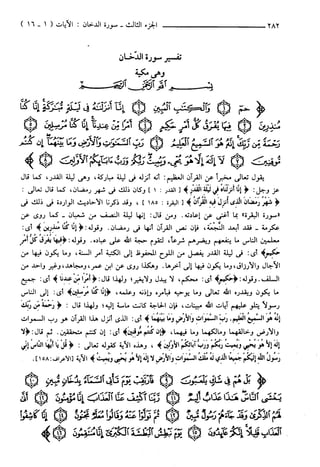 ٢٨٢ ـــ الجزء الثالث ـ سورة الدخان : الآيات ( ١ ـ ١٦ )
تفسير سورة الدخان
وهي مكية
بسم الله الرحمن الرحيم
﴿ حم ۝ والكتاب المبين ۝ إنا أنزلناه في ليلة مباركة إنا كنا
منذرين ۝ فيها يفرق كل أمر حكيم ۝ أمرا من عندنا إنا كنا مرسلين ۝
رحمة من ربك إنه هو السميع العليم ۝ رب السموات والأرض وما بينهما إن كنتم
موقنين ۝ لا إله إلا هو يحيي ويميت ربكم ورب آبائكم الأولين ۝ ﴾
يقول تعالى مخبراً عن القرآن العظيم: أنه أنزله في ليلة مباركة، وهي ليلة القدر، كما قال
عز وجل: ﴿ إنا أنزلناه في ليلة القدر ﴾ [ القدر : ١ ] وكان ذلك في شهر رمضان، كما قال تعالى :
﴿ شهر رمضان الذي أنزل فيه القرآن ﴾ [ البقرة : ١٨٥ ] ، وقد ذكرنا الأحاديث الواردة في ذلك في
«سورة البقرة» بما أغنى عن إعادته. ومن قال: إنها ليلة النصف من شعبان ـ كما روي عن
عكرمة ـ فقد أبعد النجعة، فإن نص القرآن أنها في رمضان. وقوله: ﴿ إنا كنا منذرين ﴾ أي:
معلمين الناس ما ينفعهم ويضرهم شرعاً، لتقوم حجة الله على عباده. وقوله: ﴿ فيها يفرق كل أمر
حكيم ﴾ أي: في ليلة القدر يفصل من اللوح المحفوظ إلى الكتبة أمر السنة، وما يكون فيها من
الآجال والأرزاق، وما يكون فيها إلى آخرها. وهكذا روي عن ابن عمر، ومجاهد، وغير واحد من
السلف. وقوله: ﴿ حكيم ﴾ أي: محكم، لا يبدل ولا يغير؛ ولهذا قال: ﴿ أمرا من عندنا ﴾ أي: جميع
ما يكون ويقدره الله تعالى وما يوحيه فبأمره وإذنه وعلمه، ﴿ إنا كنا مرسلين ﴾ أي: إلى الناس
رسولاً يتلو عليهم آيات الله مبينات، فإن الحاجة كانت ماسة إليه؛ ولهذا قال : ﴿ رحمة من ربك
إنه هو السميع العليم. رب السموات والأرض وما بينهما ﴾ أي: الذي أنزل هذا القرآن هو رب السموات
والأرض وخالقهما ومالكهما وما فيهما، ﴿ إن كنتم موقنين ﴾ أي: إن كنتم متحققين. ثم قال: ﴿ لا
إله إلا هو يحيي ويميت ربكم ورب آبائكم الأولين ﴾ ، وهذه الآية كقوله تعالى: ﴿ قل يا أيها الناس إني
رسول الله إليكم جميعا الذي له ملك السموات والأرض لا إله إلا هو يحيي ويميت ﴾ الآية [الأعراف: ١٥٨].
﴿ بل هم في شك يلعبون ۝ فارتقب يوم تأتي السماء بدخان مبين ۝
يغشى الناس هذا عذاب أليم ۝ ربنا اكشف عنا العذاب إنا مؤمنون ۝ أنى
لهم الذكرى وقد جاءهم رسول مبين ۝ ثم تولوا عنه وقالوا معلم مجنون ۝ إنا كاشفوا
العذاب قليلا إنكم عائدون ۝ يوم نبطش البطشة الكبرى إنا منتقمون ۝ ﴾